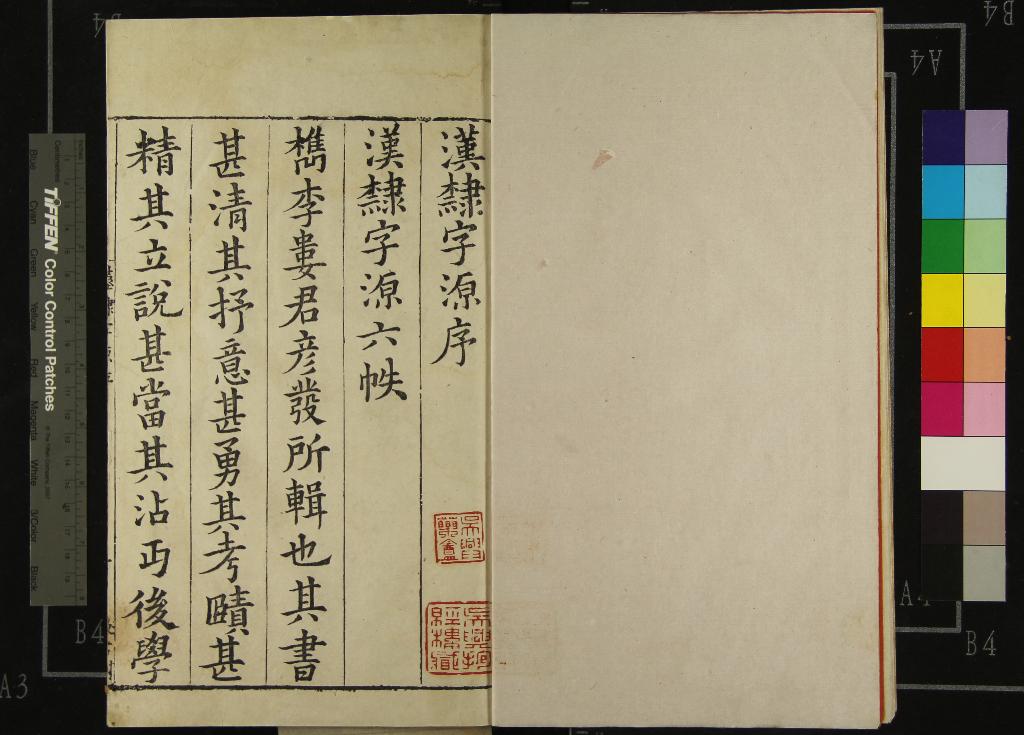 漢隸字源序
漢隸字源六帙
檇李婁君彦發所輯也其書
甚清其抒意甚勇其考賾甚
精其立說甚當其沾丏後學
TIFFEN Color Control Patches
Blue
Cyan
Green
Yellow
Red
Magenta
White
3/Color
Black
Centimetres
Inches
A4
B4
B4
B4
A3